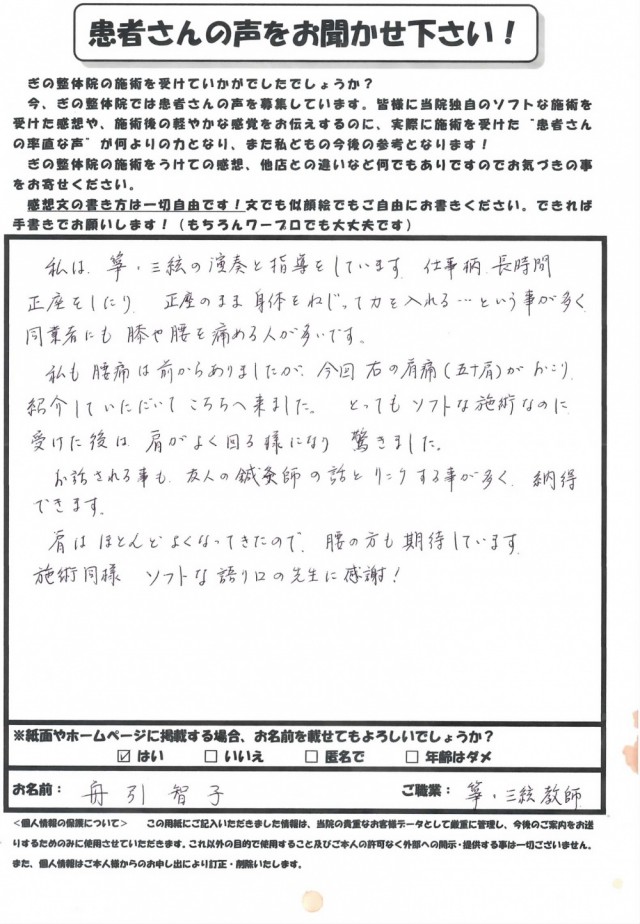 患者さんの声をお聞かせ下さい！
ぎの整体院の施術を受けていかがでしたでしょうか？
今、ぎの整体院では患者さんの声を募集しています。皆様に当院独自のソフトな施術を
受けた感想や、施術後の軽やかな感覚をお伝えするのに、実際に施術を受けた“患者さん
の率直な声”が何よりの力となり、また私どもの今後の参考となります！
ぎの整体院の施術をうけての感想、他店との違いなど何でもありですのでお気づきの事
をお寄せください。
感想文の書き方は一切自由です！文でも似顔絵でもご自由にお書きください。できれば
手書きでお願いします！（もちろんワープロでも大丈夫です）
私は、箏・三絃の演奏と指導をしています。仕事柄、長時間
正座をしたり、正座のまま身体をねじって力を入れる…という事が多く、
同業者にも膝や腰を痛める人が多いです。
私も腰痛は前からありましたが、今回右の肩痛（五十肩）がおこり、
紹介していただいてこちらへ来ました。とってもソフトな施術なのに、
受けた後は、肩がよく回る様になり驚きました。
お話される事も、友人の鍼灸師の話とリンクする事が多く、納得
できます。
肩はほとんどよくなってきたので、腰の方も期待しています。
施術同様ソフトな語り口の先生に感謝！
※紙面やホームページに掲載する場合、お名前を載せてもよろしいでしょうか？
☑ はい □ いいえ □ 匿名で □ 年齢はダメ
お名前： 舟引智子 ご職業： 箏・三絃教師
＜個人情報の保護について＞ この用紙にご記入いただきました情報は、当院の貴重なお客様データとして厳重に管理し、今後のご案内をお送
りするためのみに使用させていただきます。これ以外の目的で使用すること及びご本人の許可なく外部への開示・提供する事は一切ございません。
また、個人情報はご本人様からのお申し出により訂正・削除いたします。